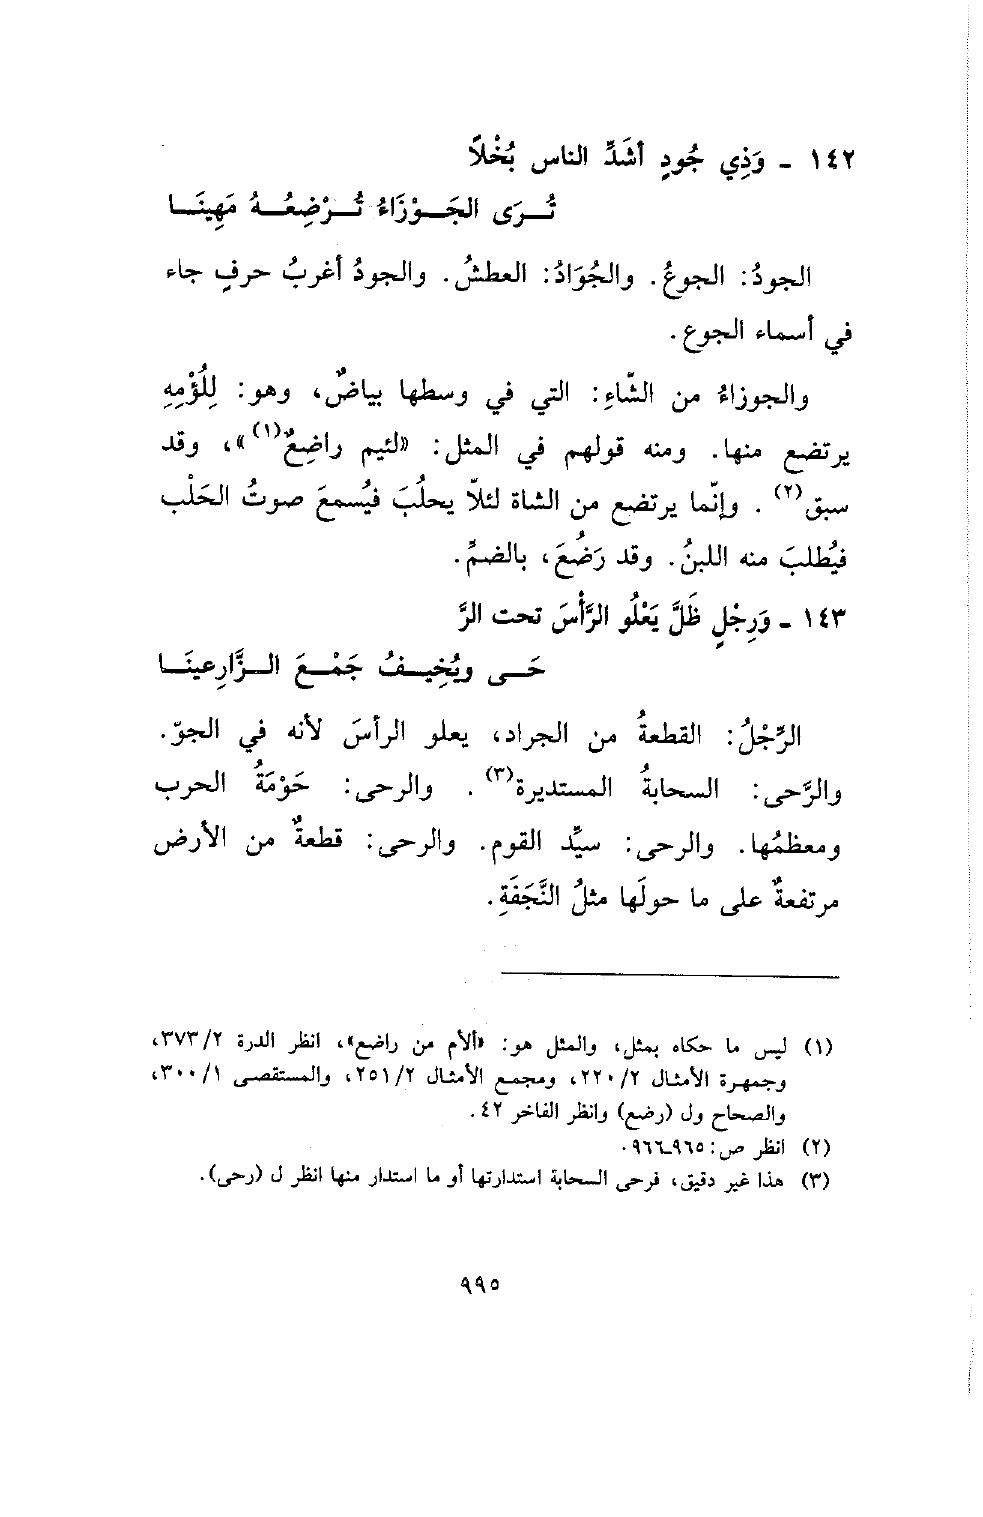 ١٤٢ ـ وَذِي جُودٍ أشَدِّ الناس بُخْلاً
تُــرَى الجَــوْزَاءُ تُــرْضِعُــهُ مَهِينَــا
الجودُ: الجوعُ. والجُوَادُ: العطشُ. والجودُ أغربُ حرفٍ جاء
في أسماء الجوع.
والجوزاءُ من الشَّاءِ: التي في وسطها بياضٌ، وهو: لِلُؤْمِهِ
يرتضع منها. ومنه قولهم في المثل: «لئيم راضِعٌ(١)»، وقد
سبق(٢). وإنّما يرتضع من الشاة لئلاّ يحلُبَ فيُسمعَ صوتُ الحَلْب
فيُطلبَ منه اللبنُ. وقد رَضُعَ، بالضمِّ.
١٤٣ ـ وَرِجْلٍ ظَلَّ يَعْلُو الرَّأسَ تحت الرَّ
حَــى ويُخِيــفُ جَمْــعَ الــزَّارِعينَــا
الرِّجْلُ: القطعةُ من الجراد، يعلو الرأسَ لأنه في الجوّ.
والرَّحى: السحابةُ المستديرة(٣). والرحى: حَوْمَةُ الحرب
ومعظمُها. والرحى: سيِّد القوم. والرحى: قطعةٌ من الأرض
مرتفعةٌ على ما حولَها مثلُ النَّجَفَةِ.
(١) ليس ما حكاه بمثل، والمثل هو: «ألأم من راضع»، انظر الدرة ٣٧٣/٢،
وجمهرة الأمثال ٢٢٠/٢، ومجمع الأمثال ٢٥١/٢، والمستقصى ٣٠٠/١،
والصحاح ول (رضع) وانظر الفاخر ٤٢.
(٢) انظر ص: ٩٦٥ـ٩٦٦.
(٣) هذا غير دقيق، فرحى السحابة استدارتها أو ما استدار منها انظر ل (رحى).
٩٩٥